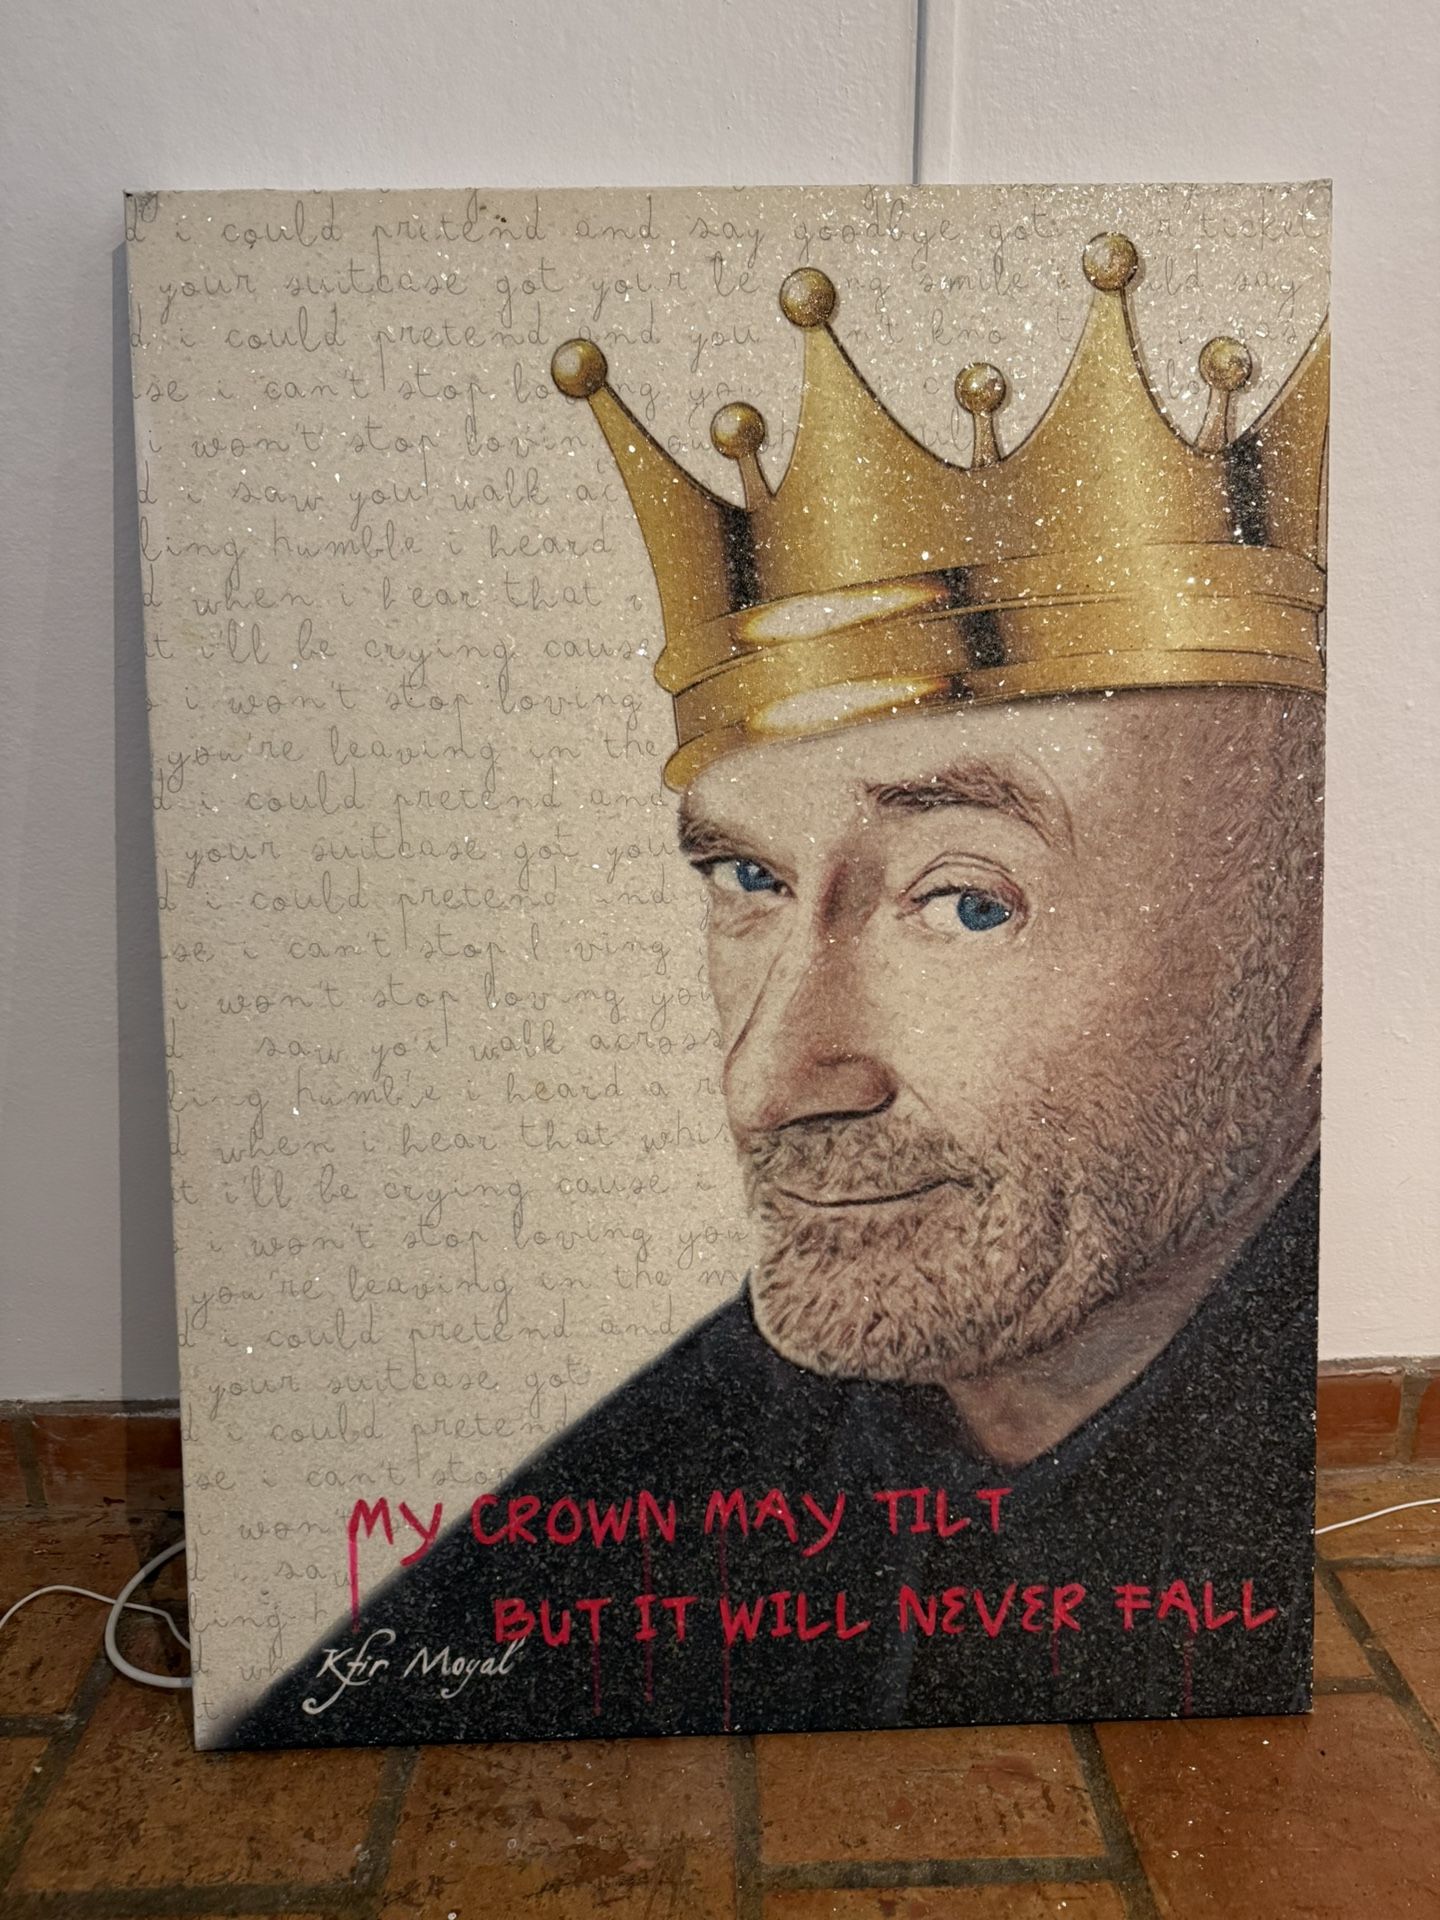 d i could pretend and say goodbye got ticket
your suitcase got smile say
d i could pretend and you
se i can't stop
i won't stop
d i saw you walk
ling humble i heard
d when i hear that
t i'll be crying cause
s i won't stop loving
you're leaving in the
d i could pretend and
your suitcase got you
d i could pretend
se i can't stop
i won't stop loving you
d saw you walk across
ling humble i heard a
d when i hear that whis
t i'll be crying cause i
s i won't stop loving you
you're leaving in the m
d i could pretend and
your suitcase got
d i could pretend
se i can't stop
i won't
MY CROWN MAY TILT
i saw
BUT IT WILL NEVER FALL
ling h
Kfir Moyal
d wh
t